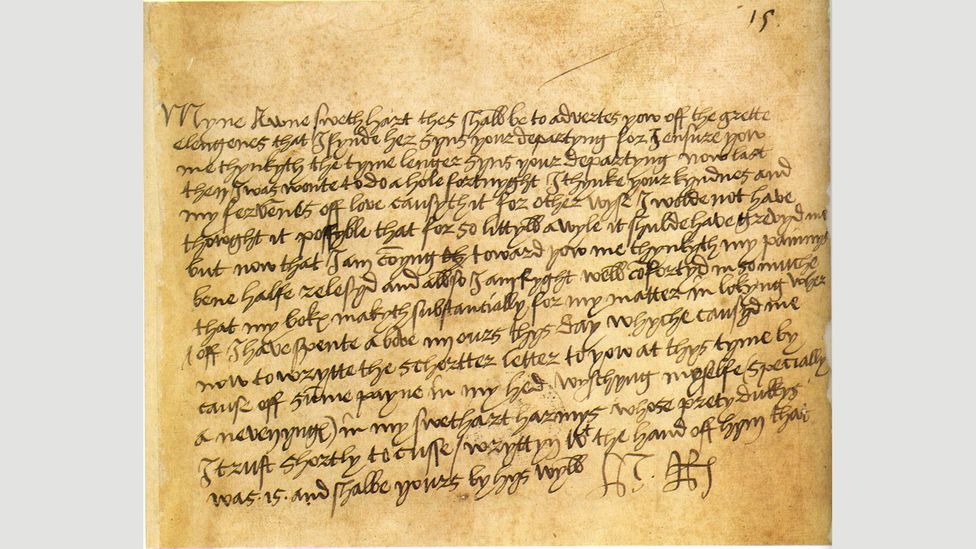 15.
Myne Awne swethhart thes shall be to advertes yow off the grette
elengenes that I fynde her syns your departyng for I ensure yow
me thynkyth the tyme lenger syns your departyng now last
then I was wonte to do a hole fortnyght I thynke your kyndnes and
my fervenes off love causyth it for other wyse I wolde not have
thowght it possyble that for so lityll a wyle it shulde have grevyd me
but now that I am comyng toward yow me thynkyth my painnys
bene halfe relesyd and allso I am ryght well cofortyd in so muche
that my boke makyth substancially for my matter in lokyng wher
off I have spente above iiij ours thys day whyche causyd me
now to wrytte the schortter letter to yow at thys tyme by
cause off sume payne in my hed wyschyng my selfe specially
a nevenyng in my swethart harmys whose prety dukkys
I trust shortly to cusse wryttyn wt the hand off hym that
was .is. and shalbe yours by hys wyll H. R